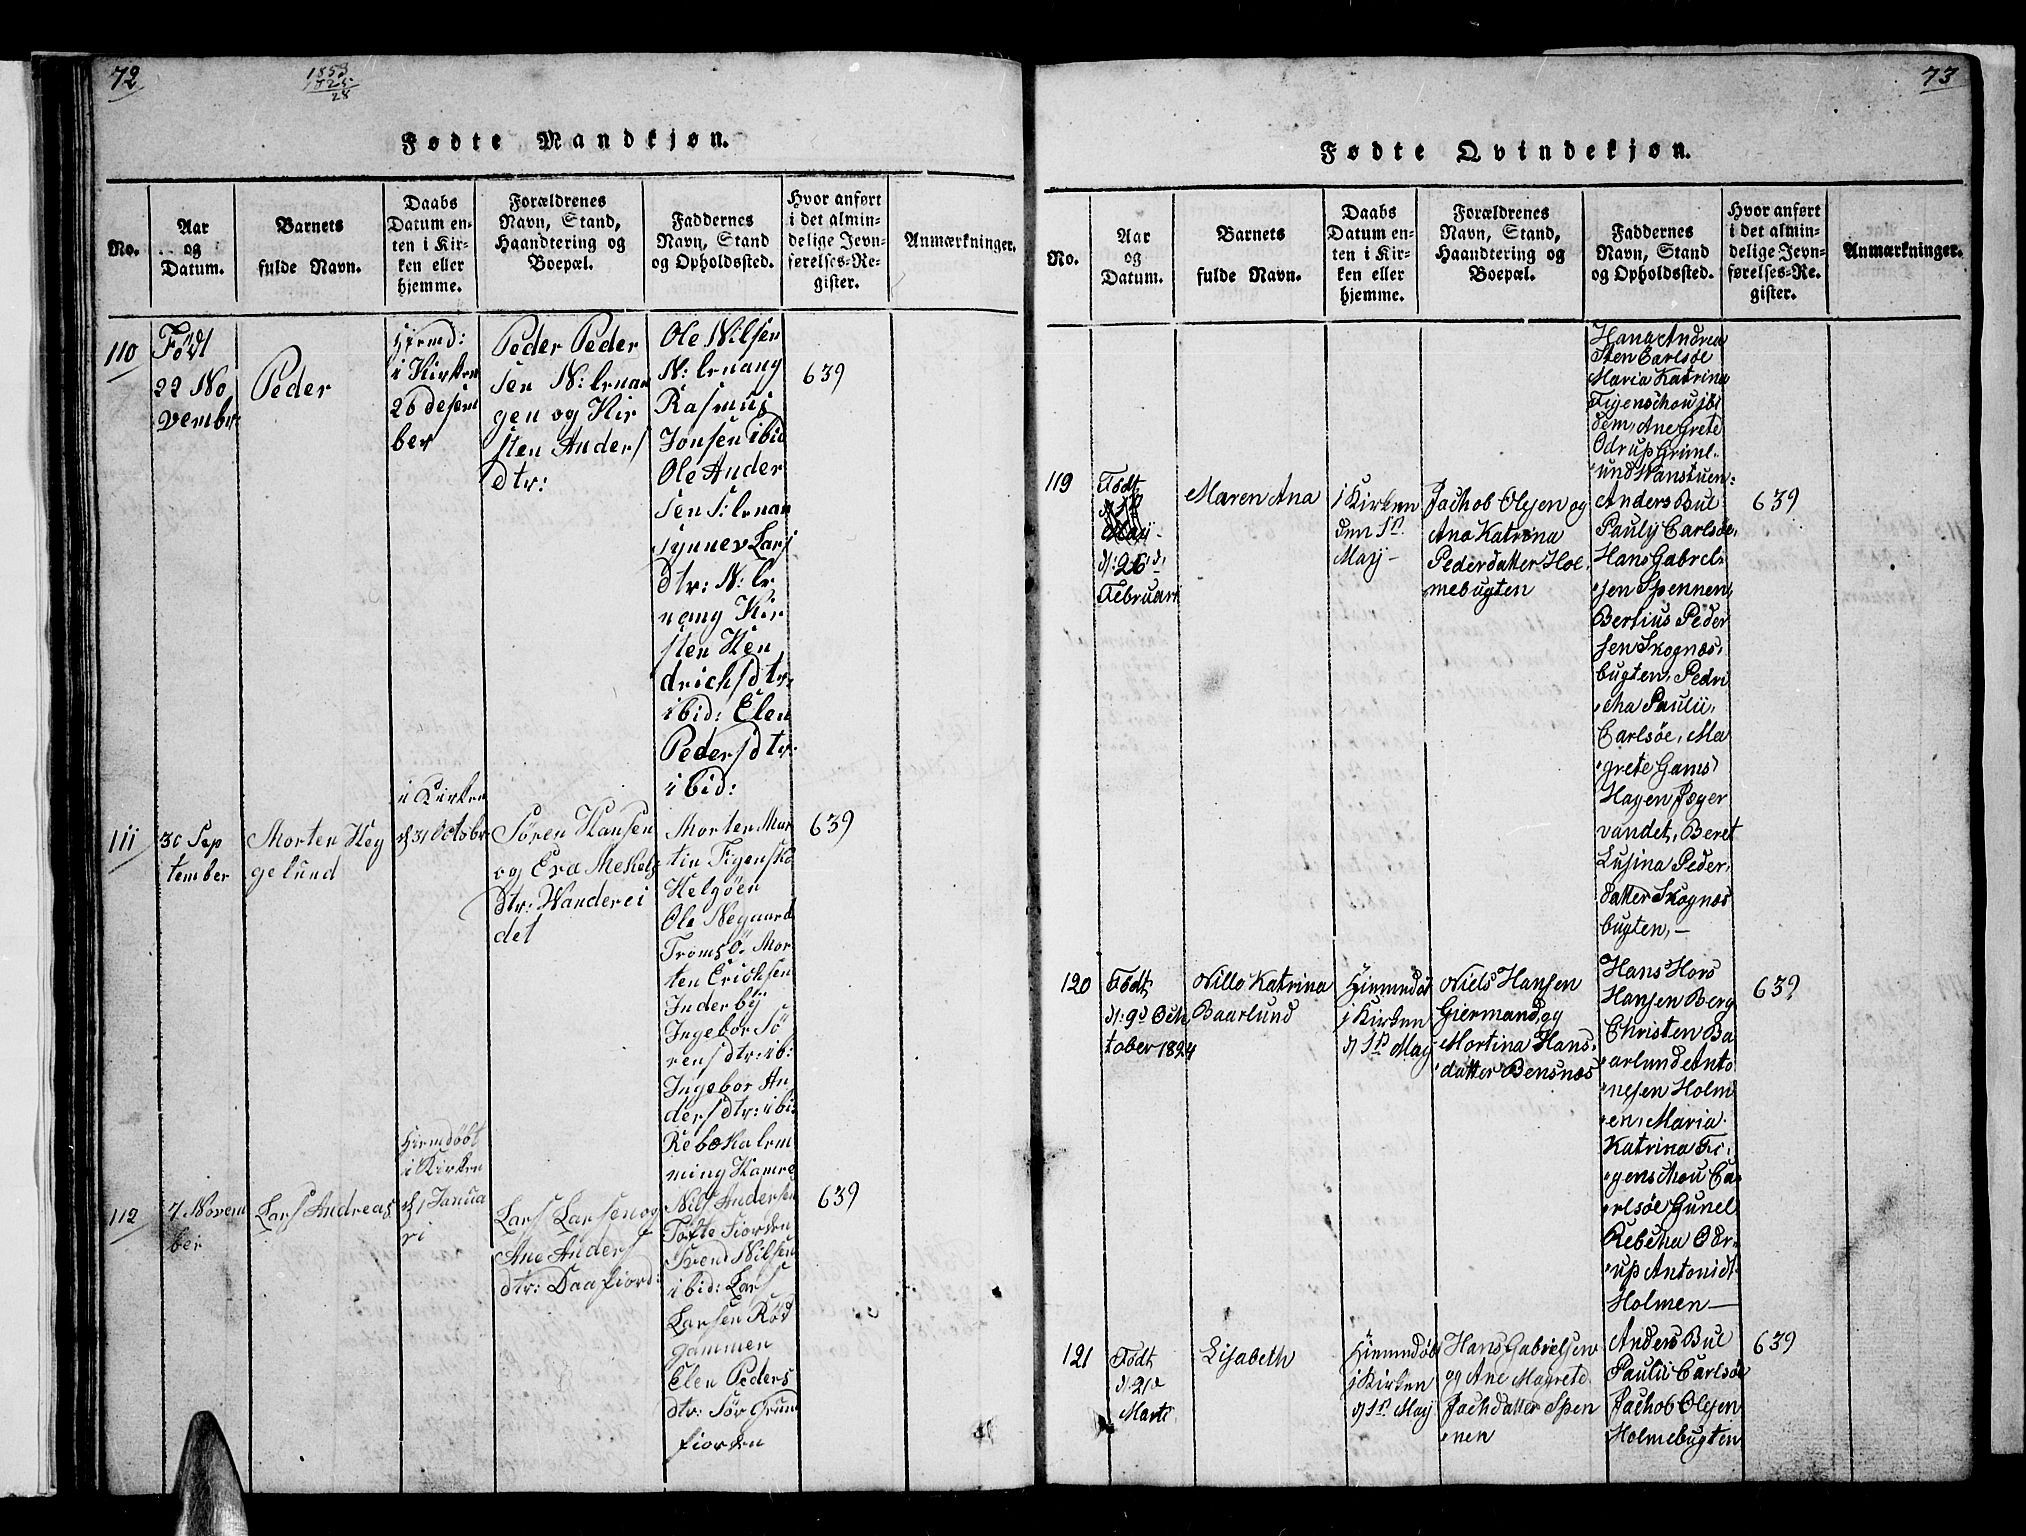 72
1853
1825
28
Fødte Mandkjøn.
No.
Aar
og
Datum.
Barnets
fulde Navn.
Daabs
Datum en-
ten i Kir-
ken eller
hjemme.
Forældrenes
Navn, Stand,
Haandtering og
Boepæl.
Faddernes
Navn, Stand
og Opholdssted.
Hvor anført
i det almin-
delige Jevn-
førelses-Re-
gister.
Anmærkninger.
110
Født
22 No
vembr
Peder
i Kirken
26 desem
ber
Peder Peder
sen N: Lrnan
gen og Kir
sten Anders
dtr:
Ole Nilsen
N: Lrnang
Rasmus
Jonsen ibid
Ole Ander
sen S: Lrnan
Synnev Lars
dtr: N: Lr
nang Kir
sten Hen
drichsdtr:
ibid: Elen
Pedersdtr:
ibid:
639
111
30 Sep
tember
Morten Hey
gelund
i Kirken
d 31 Octobr
Sören Hansen
og Eva Mekels
dtr: Vanderei
det
Morten Mar
tin Figensko
Helgöen
Ole Negaard
Tromsö. Mor
ten Erichsen
Inderby
Ingebor Sö
rensdtr: ib:
Ingebor An
dersdtr: ibi:
639
112
7 Novem
ber
Lars Andreas
Hiemdöbt
i Kirken
d 1 Janua
ri
Lars Larsen og
Ane Anders
dtr: Daafiord:
Nils Andersen
Tofte Fiorden
Svend Nilsen
ibid: Lars
Larsen Röd
gammen
Elen Peders
dtr: Sör Grun
fiorden
639
73
Fødte Qvindekjøn.
No.
Aar
og
Datum.
Barnets
fulde Navn.
Daabs
Datum en-
ten i Kir-
ken eller
hjemme.
Forældrenes
Navn, Stand,
Haandtering og
Boepæl.
Faddernes
Navn, Stand
og Opholdssted.
Hvor anført
i det almin-
delige Jevn-
førelses-Re-
gister.
Anmærkninger.
119
Födt
Maij
d: 26d
Februari
Maren Ana
i Kirken
den 1d
Maij
Jachob Olesen og
Ana Katrina
Pederdatter Hol
mebugten
Hans Andrea
sten Carlsöe
Maria Katrina
Figenschou ibi
dem, Ane Grete
Odrup Grunl
und
Anders Bul
Pauly Carlsöe,
Hans Gabrel
sen Spennen,
Bertius Peder
sen Skognæs
bugten, Pedri
cha Paulii,
Carlsöe, Ma
grete Gams
Hagen Jæger
vandet, Beret
Lusina Peder
datter Skognæs
bugten,
639
120
Födt
d: 9d Ock
tober 1824
Nille Katrina
Baarlund
Hiemmdöb
i Kirken
d 1d Maij
Niels Hansen
Giermand og
Mortina Hans
datter Bensnæs
Hans Hors
Hansen Berg
Christen Ba
arlund Anto
nesen Holm
en, Maria
Katrina Fi
genschou Ca
rlsöe Gunel
Rebecha Odr
up Antonidt
Holmen
639
121
Födt
d 21d
Marti
Lisabeth
Hiemmdöb
i Kirken
d 1d Maij
Hans Gabrielsen
og Ane Magrete
Jachdatter Spen
nen
Anders Bul
Paulii Carlsöe
Jachob Olesen
Holmebugten
639